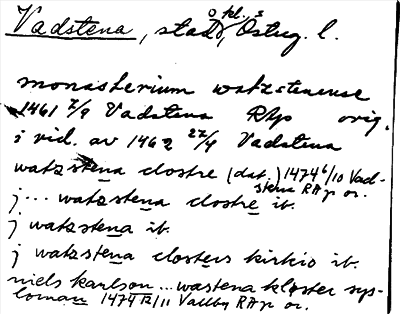 Vadstena, stad, o. kl., Östug. l.
monasterium watzstenense
1461 7/9 Vadstena RAp orig.
i vid. av 1462 22/4 Vadstena
watzstena clostre (dat.) 1474 6/10 Vad-
stena RAp or.
j ... watzstena clostre ib.
j watzstena ib.
j watzstena closters kirkio ib.
niels karlson ... wastena kloster sys-
loman 1474 12/11 Vallby RAp or.